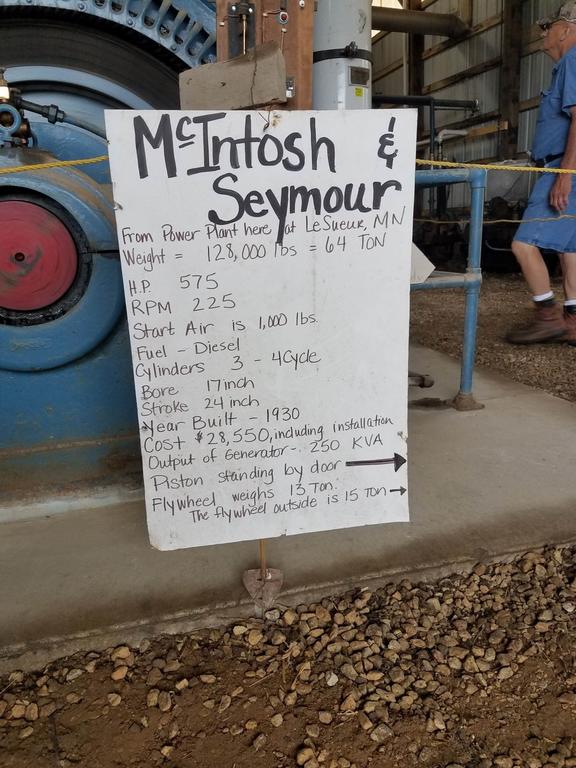 McIntosh &
Seymour
From Power Plant here at LeSueur, MN
Weight = 128,000 lbs = 64 TON
H.P. 575
RPM 225
Start Air is 1,000 lbs.
Fuel - Diesel
Cylinders 3 - 4Cycle
Bore 17inch
Stroke 24inch
Year Built - 1930
Cost $28,550, including installation
Output of Generator - 250 KVA
Piston standing by door →
Flywheel weighs 13 Ton.
The flywheel outside is 15 Ton →